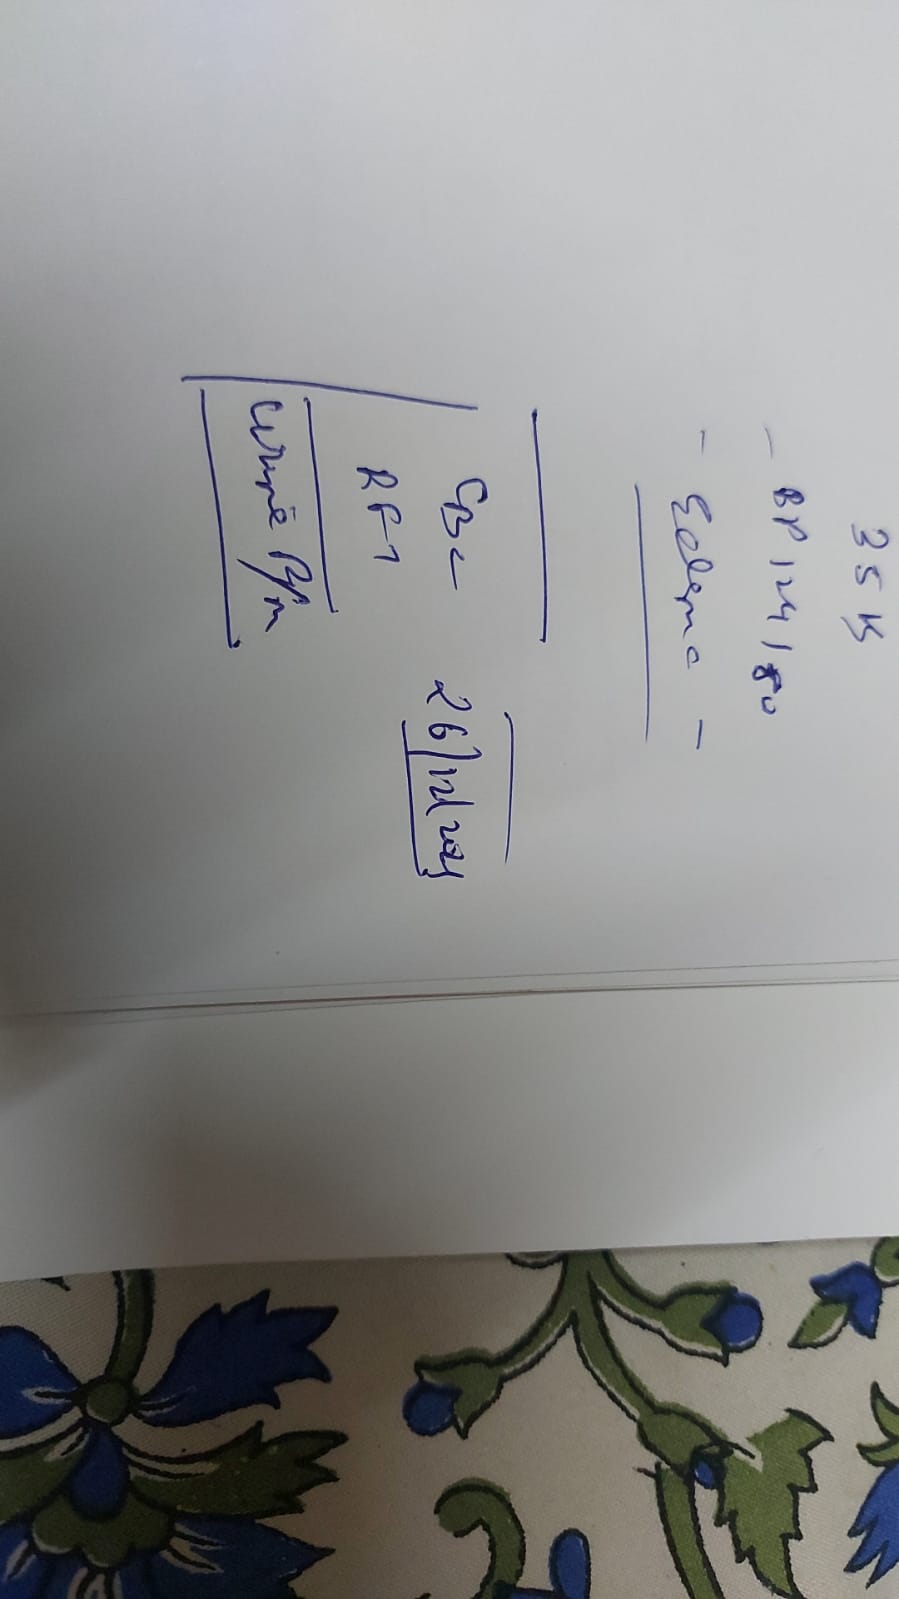 35 K
- BP 124/80
- Edema -
CBC
RFT
26/12/2024
Urine R/m